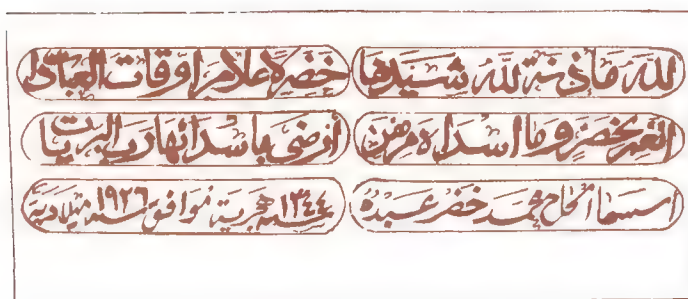 لله مأذنة لله شيدها خضر لاعلام اوقات العبادة
انعم بخضر وما اسداه من ارضى باسدائها رب البريات
اسسها الحاج محمد خضر عبده سنة ١٣٤٤ هجرية موافق سنة ١٩٢٦ ميلادية